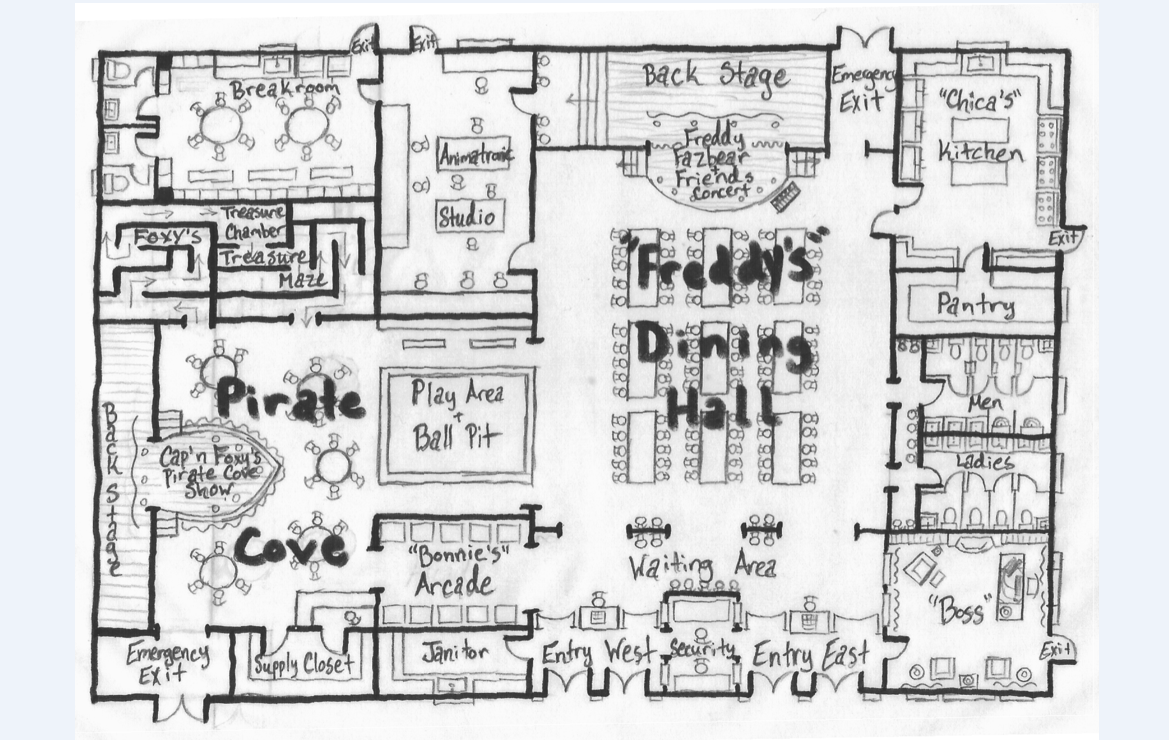 Exit
Exit
Breakroom
Back Stage
Emergency
Exit
"Chica's"
Kitchen
Freddy
Fazbear
+
Friends
Concert
Animatronic
Studio
Treasure
Chamber
Foxy's
Treasure
Maze
"Freddy's"
Dining
Hall
Exit
Pantry
Men
Ladies
Play Area
+
Ball Pit
Pirate
Cove
Back Stage
Cap'n Foxy's
Pirate Cove
Show
"Bonnie's"
Arcade
Waiting Area
"Boss"
Exit
Emergency
Exit
Supply Closet
Janitor
Entry West
Security
Entry East